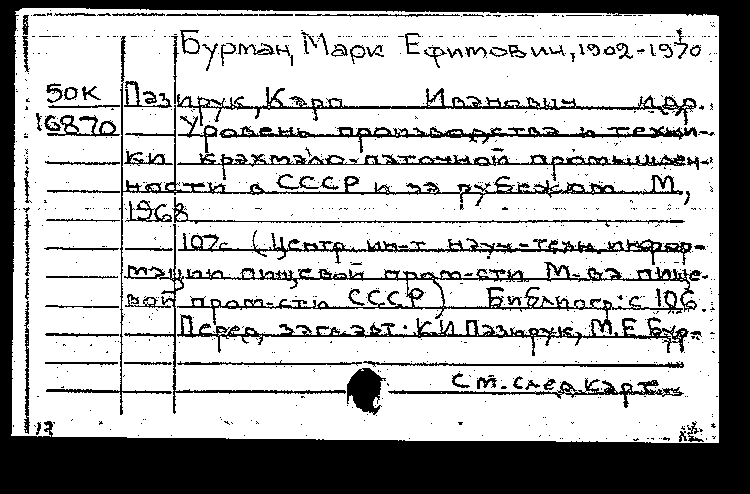 Бурман, Марк Ефимович, 1902-1970
50К Пазирук, Карп Иванович и др.
16870 Уровень производства и техни-
ки крахмало-паточной промышлен-
ности в СССР и за рубежом М.,
1968.
107с (Центр. ин-т науч-техн. инфор-
мации пищевой пром-сти М-ва пище-
вой пром-сти СССР) Библиогр: с 106.
Перед загл. авт: К.И Пазирук, М.Е. Бур-
См. след. карт.